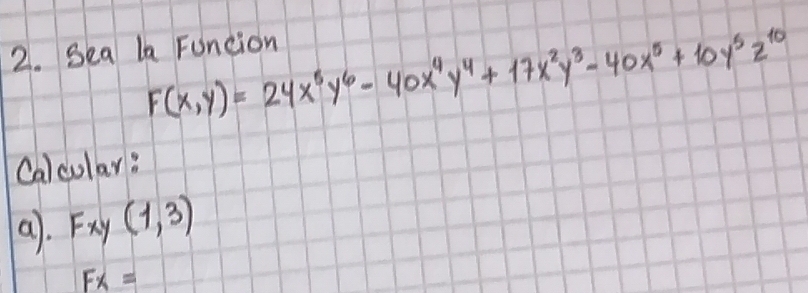 2. Sea la Función
F(x,y) = 24x⁶y⁶ - 40x⁴y⁴ + 17x²y³ - 40x⁵ + 10y⁵z¹⁰
Calcular:
a). Fxy (1,3)
Fx =